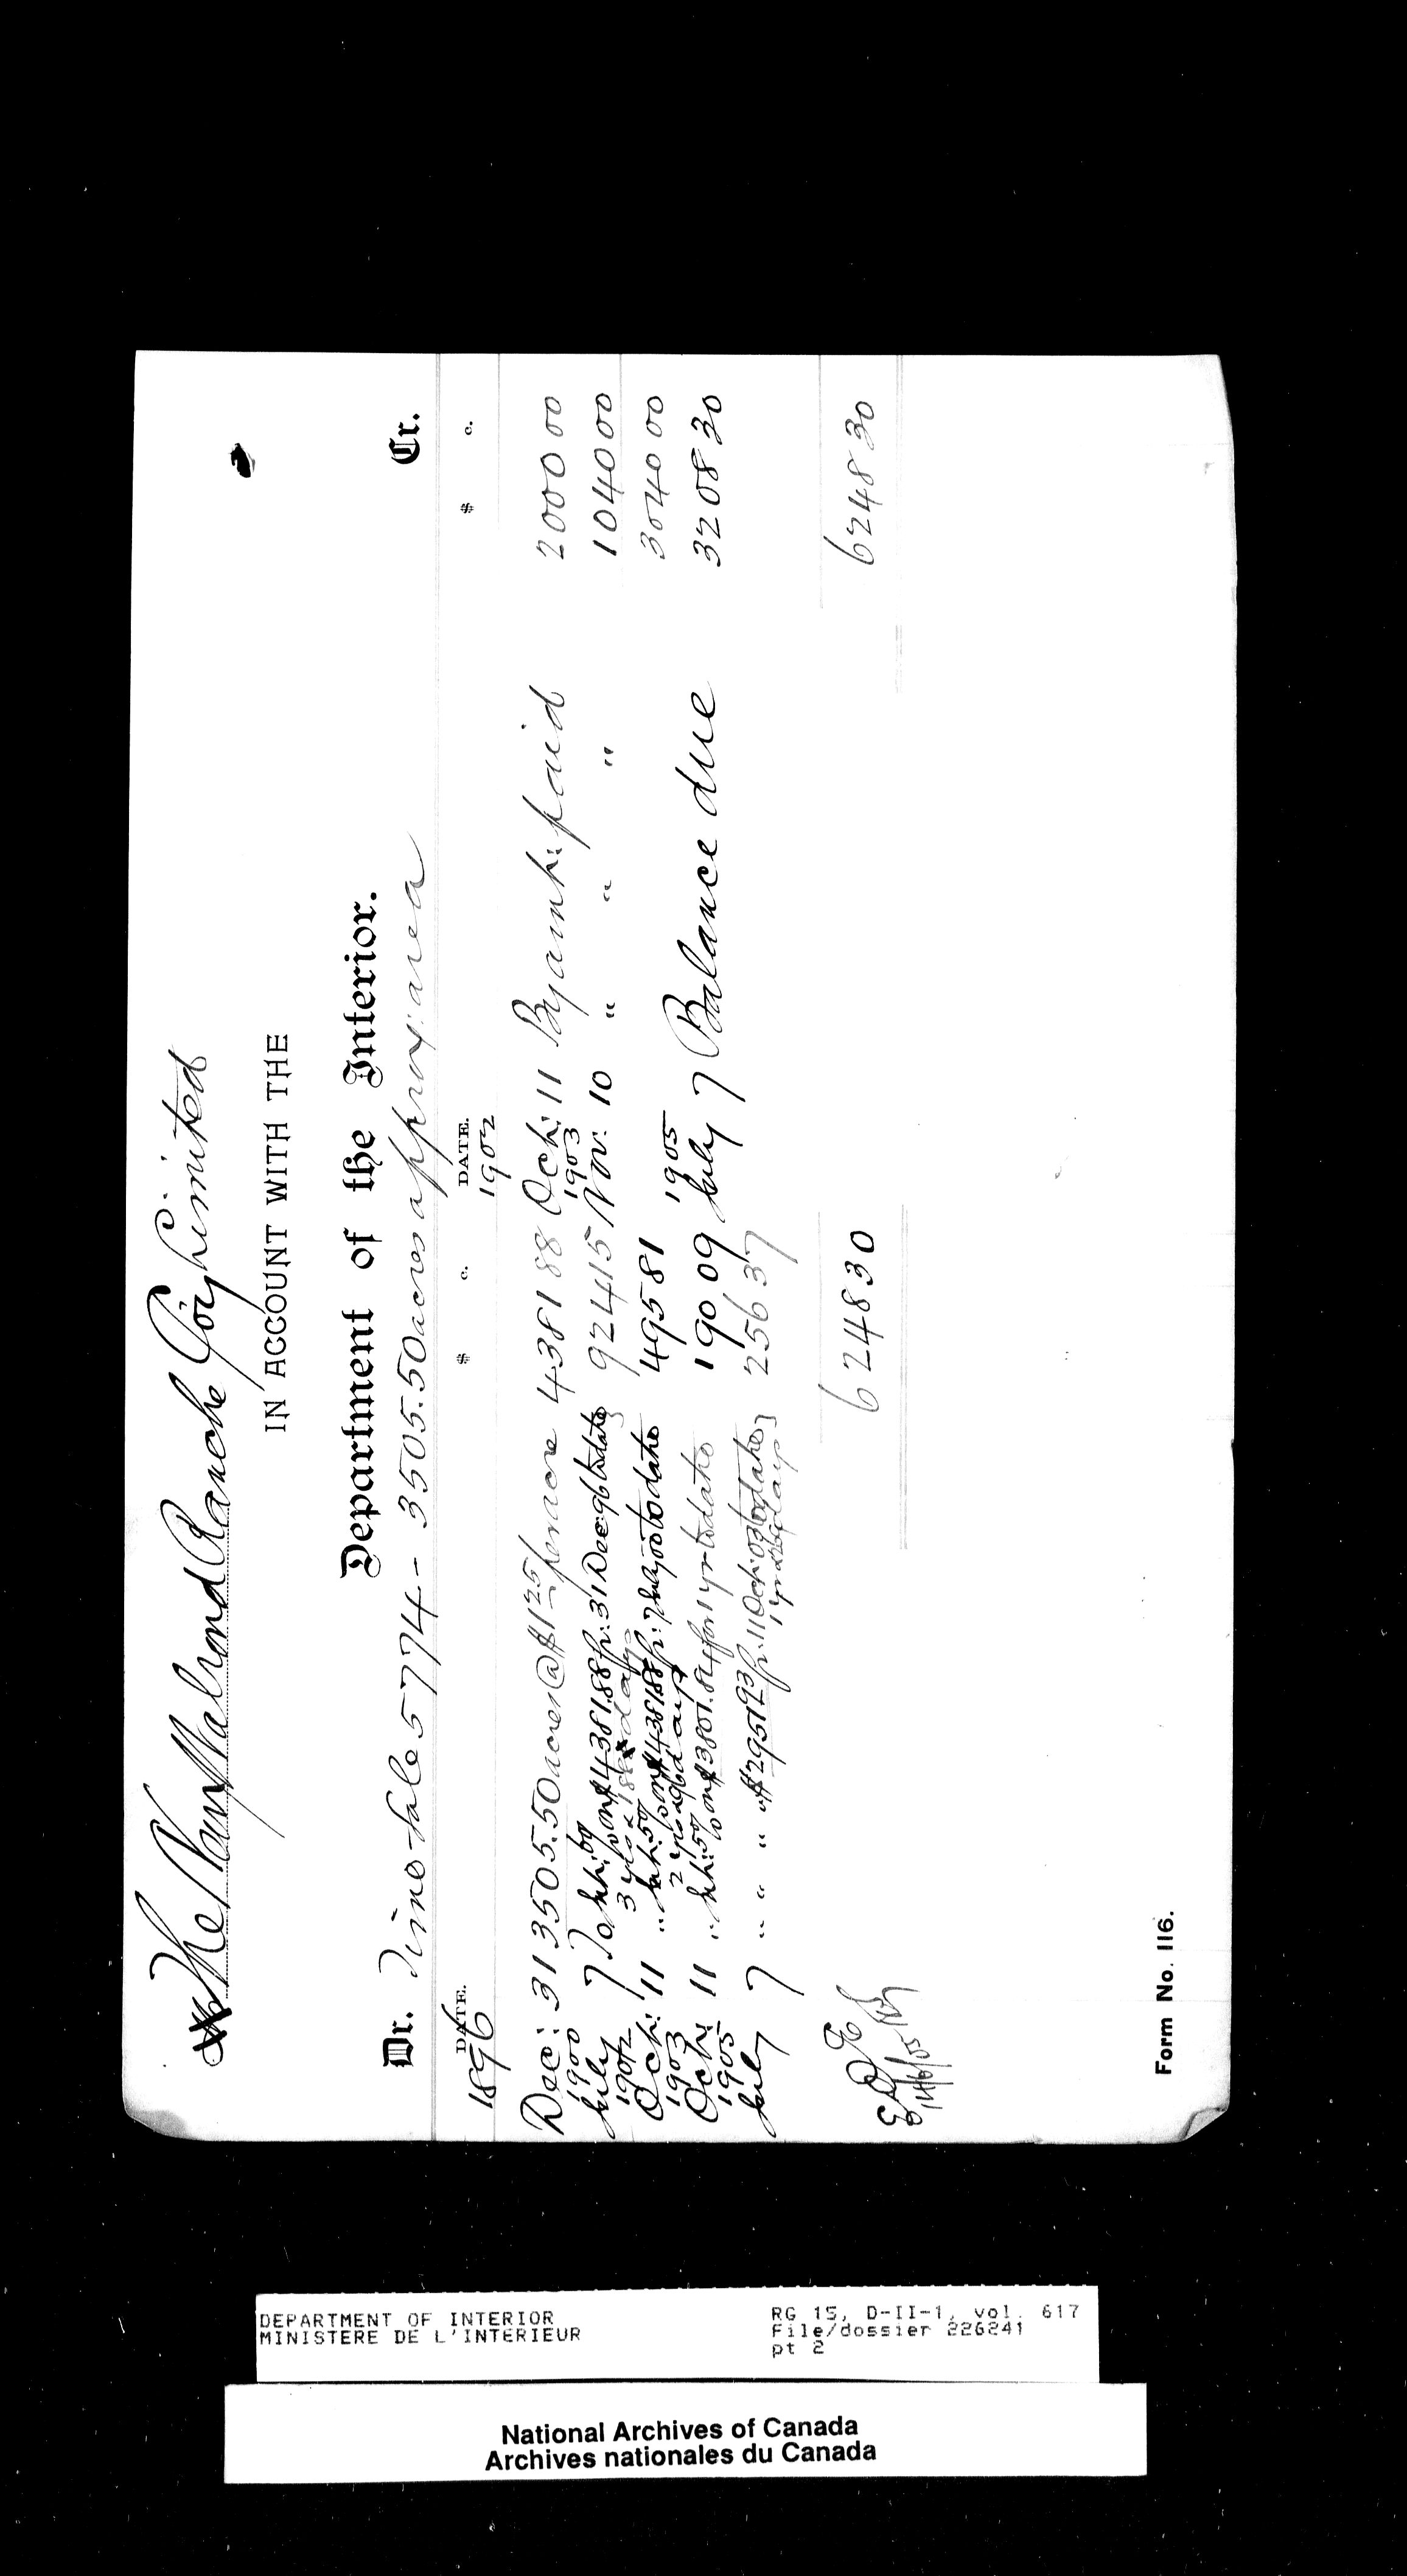 The New Walrond Ranche Coy Limited
IN ACCOUNT WITH THE
Department of the Interior.
Dr. Timo Sale 5774 - 3505.50 acres approx: area Cr.
DATE. $ c. DATE. $ c.
1896 1902
Dec: 31 3505.50 acres @ $1 25 per acre 4381 88 Oct: 11 By amt: paid 2000 00
1900 1903
July 7 To int: 6% on $4381.88 fr: 31 Dec: 96 to date 924 15 Nov: 10 " " " 1040 00
3 yrs & 188 days
1902
Oct: 11 " int: 5% on $4381.88 fr: 7 July 00 to date 495 81 3040 00
2 yrs & 96 days
1903 1905
Oct: 11 " int: 5% on $3801.84 for 1 yr to date 190 09 July 7 Balance due 3208 30
1905
July 7 " " " " $2951 93 fr: 11 Oct: 03 to date 256 37
1 yr days
6248 30 6248 30
Form No. 116.
DEPARTMENT OF INTERIOR
MINISTERE DE L'INTERIEUR
RG 15, D-II-1, vol. 617
File/dossier 226241
pt 2
National Archives of Canada
Archives nationales du Canada